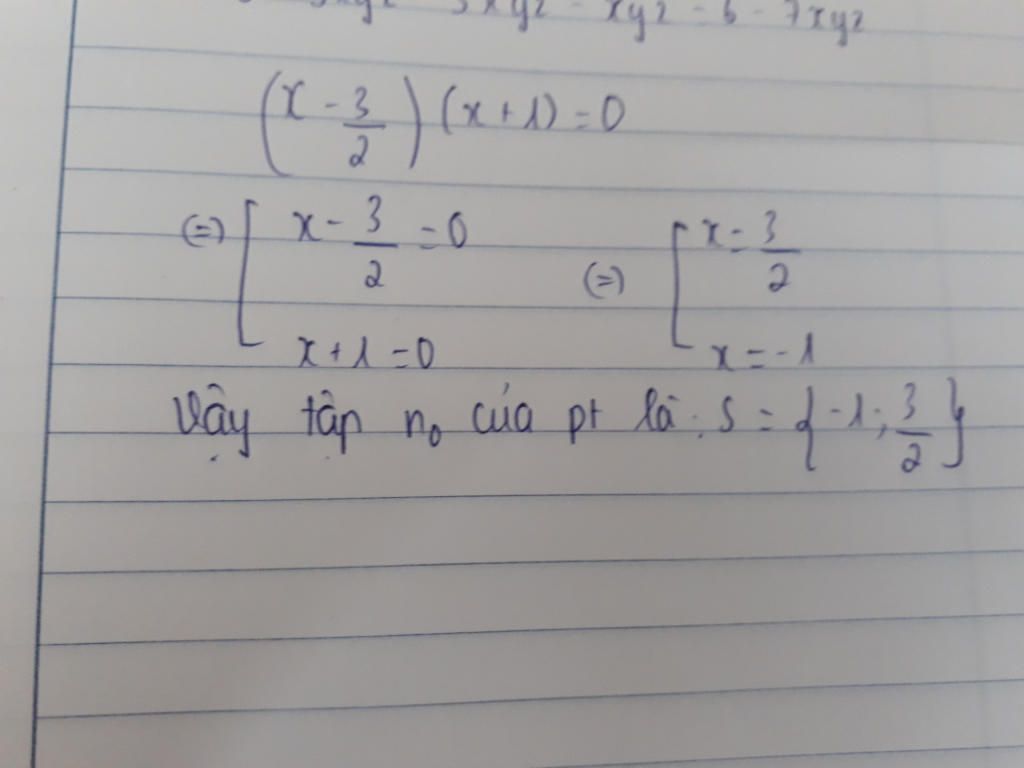 3xyz - xyz = 6 - 7xyz
(x - 3/2) (x + 1) = 0
(=) [ x - 3/2 = 0 (=) [ x = 3/2
x + 1 = 0 x = -1
Vậy tập n₀ của pt là : S = {-1; 3/2}